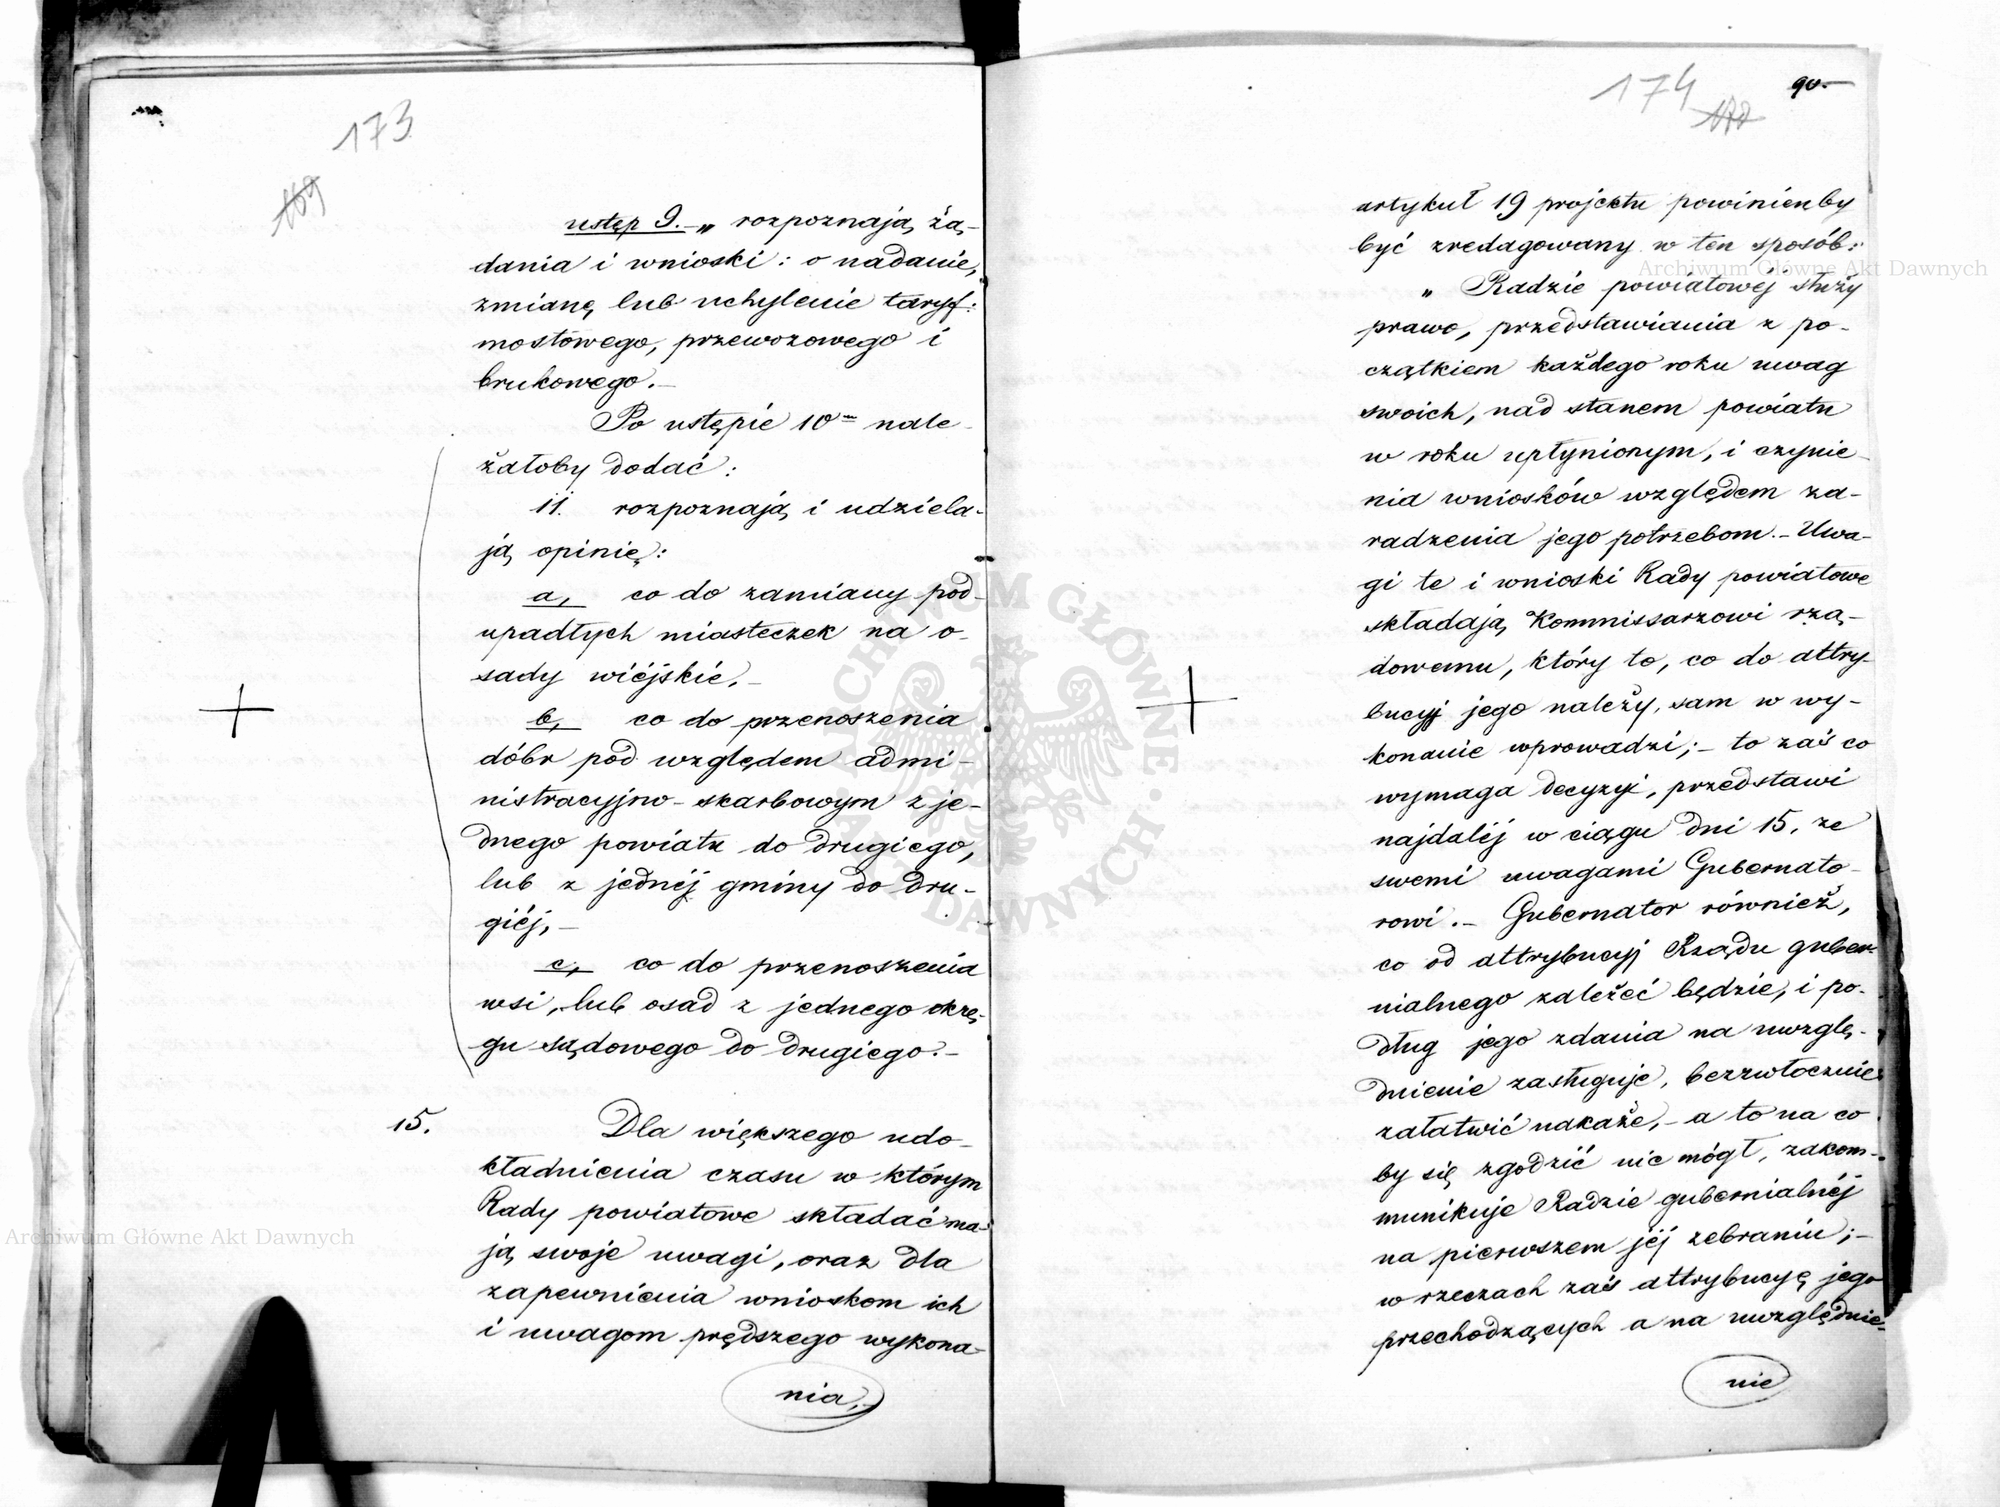 173
169
ustęp 9. „ rozpoznają żą-
dania i wnioski: o nadanie,
zmianę lub uchylenie taryf:
mostowego, przewozowego i
brukowego.—
Po ustępie 10m nale-
żałoby dodać:
11. rozpoznają i udziela-
ją opinię:
a, co do zamiany pod-
upadłych miasteczek na o-
sady wiéjskie,—
b, co do przenoszenia
dóbr pod względem admi-
nistracyjno-skarbowym z je-
dnego powiatu do drugiego,
lub z jednéj gminy do dru-
giéj,—
c, co do przenoszenia
wsi, lub osad z jednego okrę-
gu sądowego do drugiego.—
15. Dla większego udo-
kładnienia czasu w którym
Rady powiatowe składać ma-
ją swoje uwagi, oraz dla
zapewnienia wnioskom ich
i uwagom prędszego wykona-
nia,—
174
90.—
artykuł 19 projektu powinienby
być zredagowany w ten sposób:
„ Radzie powiatowéj służy
prawo, przedstawiania z po-
czątkiem każdego roku uwag
swoich, nad stanem powiatu
w roku upłynionym, i czynie-
nia wniosków względem za-
radzenia jego potrzebom.— Uwa-
gi te i wnioski Rady powiatowe
składają Kommissarzowi rzą-
dowemu, który to, co do attry-
bucyj jego należy, sam w wy-
konanie wprowadzi;— to zaś co
wymaga decyzyi, przedstawi
najdaléj w ciągu dni 15, ze
swemi uwagami Gubernato-
rowi.— Gubernator również,
co od attrybucyj Rządu guber-
nialnego zależeć będzie, i po-
dług jego zdania na uwzglę-
dnienie zasługuje, bezzwłocznie
załatwić nakaże,— a to na co
by się zgodzić nie mógł, zakom-
munikuje Radzie gubernialnéj
na pierwszem jéj zebraniu;—
w rzeczach zaś attrybucyę jego
przechodzących a na uwzględnie-
nie
Archiwum Główne Akt Dawnych
Archiwum Główne Akt Dawnych
ARCHIWUM GŁÓWNE · AKT DAWNYCH ·